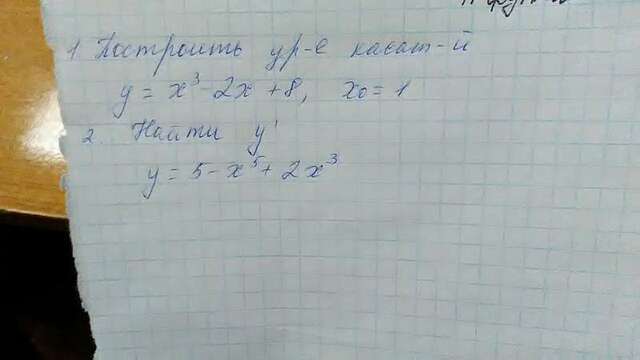 1 Построить ур-е касат-й
y = x³ - 2x + 8, x₀ = 1
2. Найти y'
y = 5 - x⁵ + 2x³